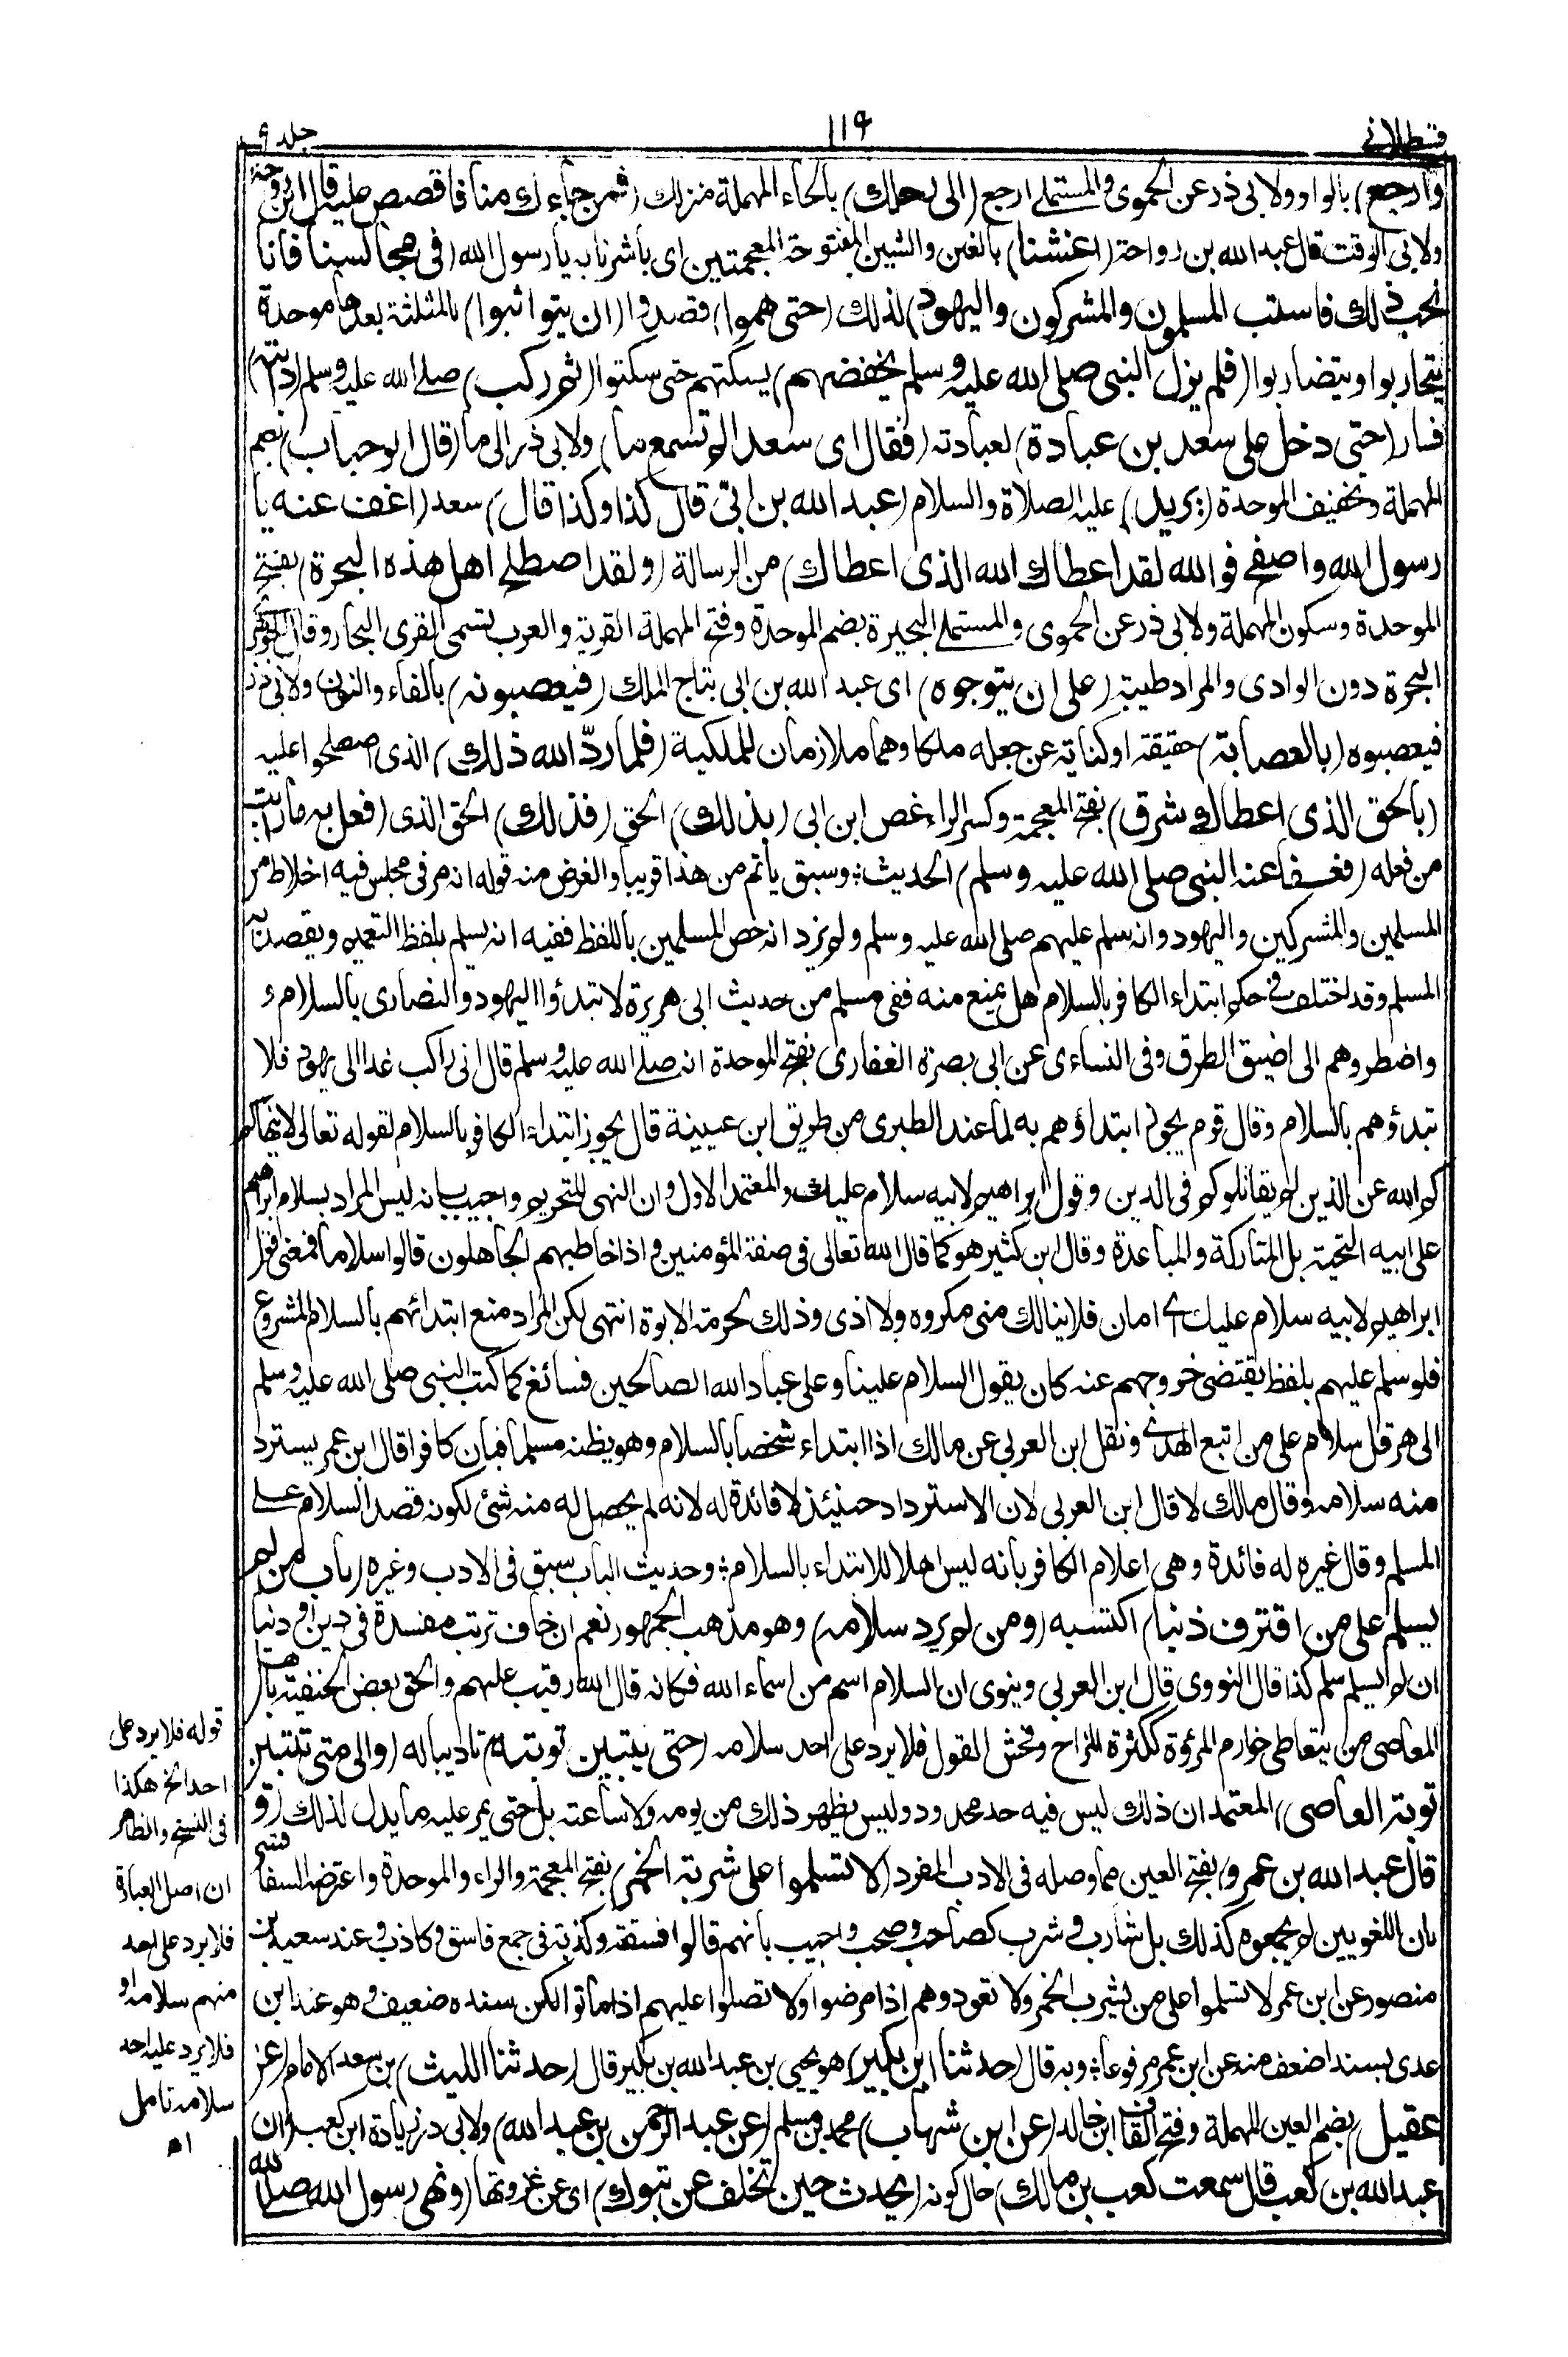 قسطلانی
١١٩
جلد ٩
وارجع) بالواو ولابی ذر عن الحموی والمستملی ارجع (الی رحلك) بالحاء المهملة منزلك (فمن جاءك منا فاقصص علیه قال ابن رواحة
ولابی الوقت قال عبد الله بن رواحة (اغشنا) بالغین والشین المفتوحة المعجمتین ای باشرنا به یا رسول الله (فی مجالسنا فانا
نحب ذلك فاستب المسلمون والمشركون والیهود) لذلك (حتی هموا) قصدوا (ان یتواثبوا) بالمثلثة بعدها موحدة
یتحاربوا ویتضاربوا (فلم یزل النبی صلی الله علیه وسلم یخفضهم) یسكتهم حتی سكتوا (ثم ركب) صلی الله علیه وسلم (دابته)
فسار (حتی دخل علی سعد بن عبادة) لعیادته (فقال ای سعد الم تسمع ما) ولابی ذر الی ما (قال ابو حباب) بضم
المهملة وتخفیف الموحدة (یرید) علیه الصلاة والسلام (عبد الله بن ابیّ قال كذا وكذا قال) سعد (اعف عنه یا
رسول الله واصفح فوالله لقد اعطاك الله الذی اعطاك) من الرسالة (ولقد اصطلح اهل هذه البحرة) بفتح
الموحدة وسكون المهملة ولابی ذر عن الحموی والمستملی البحیرة بضم الموحدة وفتح المهملة القریة والعرب تسمی القری البحار وقال الجوهری
البحرة دون الوادی والمراد طیبة (علی ان یتوجوه) ای عبد الله بن ابی بتاج الملك (فیعصبونه) بالفاء والنون ولابی ذر
فیعصبوه (بالعصابة) حقیقة او كنایة عن جعله ملكا وهما ملازمان للملكیة (فلما ردّ الله ذلك) الذی اصطلحوا علیه
(بالحق الذی اعطاك شرق) بفتح المعجمة وكسر الراء غص ابن ابی (بذلك) الحق (فذلك) الحق الذی (فعل به ما رایت)
من فعله (فعفا عنه النبی صلی الله علیه وسلم) الحدیث؛ وسبق باتم من هذا قریبا والغرض منه قوله انه مر فی مجلس فیه اخلاط من
المسلمین والمشركین والیهود وانه سلم علیهم صلی الله علیه وسلم ولم یرد انه خص المسلمین باللفظ ففیه انه یسلم بلفظ التعمیم ویقصد به
المسلم وقد اختلف فی حكم ابتداء الكافر بالسلام هل یمنع منه ففی مسلم من حدیث ابی هریرة لا تبدؤا الیهود والنصاری بالسلام
واضطروهم الی اضیق الطرق وفی النساءی عن ابی بصرة الغفاری بفتح الموحدة انه صلی الله علیه وسلم قال انی راكب غدا الی یهود فلا
تبدؤهم بالسلام وقال قوم یجوز ابتداؤهم به لما عند الطبری من طریق ابن عیینة قال یجوز ابتداء الكافر بالسلام لقوله تعالی لا ینهاكم
كم الله عن الذین لم یقاتلوكم فی الدین وقول ابراهیم لابیه سلام علیك والمعتمد الاول وان النهی للتحریم واجیب بانه لیس المراد بسلام ابراهیم
علی ابیه التحیة بل المتاركة والمباعدة وقال ابن كثیر هو كما قال الله تعالی فی صفة المؤمنین واذا خاطبهم الجاهلون قالوا سلاما فمعنی قول
ابراهیم لابیه سلام علیك ای امان فلا ینالك منی مكروه ولا اذی وذلك لحرمة الابوة انتهی لكن المراد منع ابتدائهم بالسلام المشروع
فلو سلم علیهم بلفظ یقتضی خروجهم عنه كان یقول السلام علینا وعلی عباد الله الصالحین فسائغ كما كتب النبی صلی الله علیه وسلم
الی هرقل سلام علی من اتبع الهدی ونقل ابن العربی عن مالك اذا ابتداء شخصا بالسلام وهو یظنه مسلما فبان كافرا قال ابن عمر یسترد
منه سلامه وقال مالك لا قال ابن العربی لان الاسترداد حینئذ لا فائدة له لانه لم یحصل له منه شئ لكونه قصد السلام علی
المسلم وقال غیره له فائدة وهی اعلام الكافر بانه لیس اهلا للابتداء بالسلام؛ وحدیث الباب سبق فی الادب وغیره (باب من لم
یسلم علی من اقترف ذنبا) اكتسبه (ومن لم یرد سلامه) وهو مذهب الجمهور نعم ان خاف ترتب مفسدة فی دین او دنیا
ان لم یسلم سلم كذا قال النووی قال ابن العربی وینوی ان السلام اسم من اسماء الله فكانه قال الله رقیب علیهم والحق بعض الحنفیة باهل
المعاصی من یتعاطی خوارم المرؤة ككثرة المزاح وفحش القول فلا یرد علی احد سلامه (حتی یتبین توبته) تادیبا له (والی متی تتبین
توبة العاصی) المعتمد ان ذلك لیس فیه حد محدود ولیس یظهر ذلك من یومه ولا ساعته بل حتی یمر علیه ما یدل لذلك (و
قال عبد الله بن عمرو) بفتح العین مما وصله فی الادب المفرد (لا تسلموا علی شربة الخمر) بفتح المعجمة والراء والموحدة واعترضه السفاقسی
بان اللغویین لم یجمعوه كذلك بل شارب وشرب كصاحب وصحب واجیب بانهم قالوا فسقة وكذبة فی جمع فاسق وكاذب وعند سعید بن
منصور عن ابن عمر لا تسلموا علی من یشرب الخمر ولا تعودوهم اذا مرضوا ولا تصلوا علیهم اذا ماتوا لكن سنده ضعیف وهو عند ابن
عدی بسند اضعف منه عن ابن عمر مرفوعا؛ وبه قال (حدثنا ابن بكیر) هو یحیی بن عبد الله بن بكیر قال (حدثنا اللیث) بن سعد الامام (عن
عقیل) بضم العین المهملة وفتح القاف ابن خالد (عن ابن شهاب) محمد بن مسلم (عن عبد الرحمن بن عبد الله) ولابی ذر زیادة ابن كعب (ان
عبد الله بن كعب قال سمعت كعب بن مالك) حال كونه (یحدث حین تخلف عن تبوك) ای عن غزوتها (ونهی رسول الله صلی الله
قوله فلا یرد علی
احد الخ هكذا
فی النسخ والظاهر
ان اصل العبارة
فلا یرد علی احد
منهم سلامه او
فلا یرد علیه احد
سلامه تامل
اه